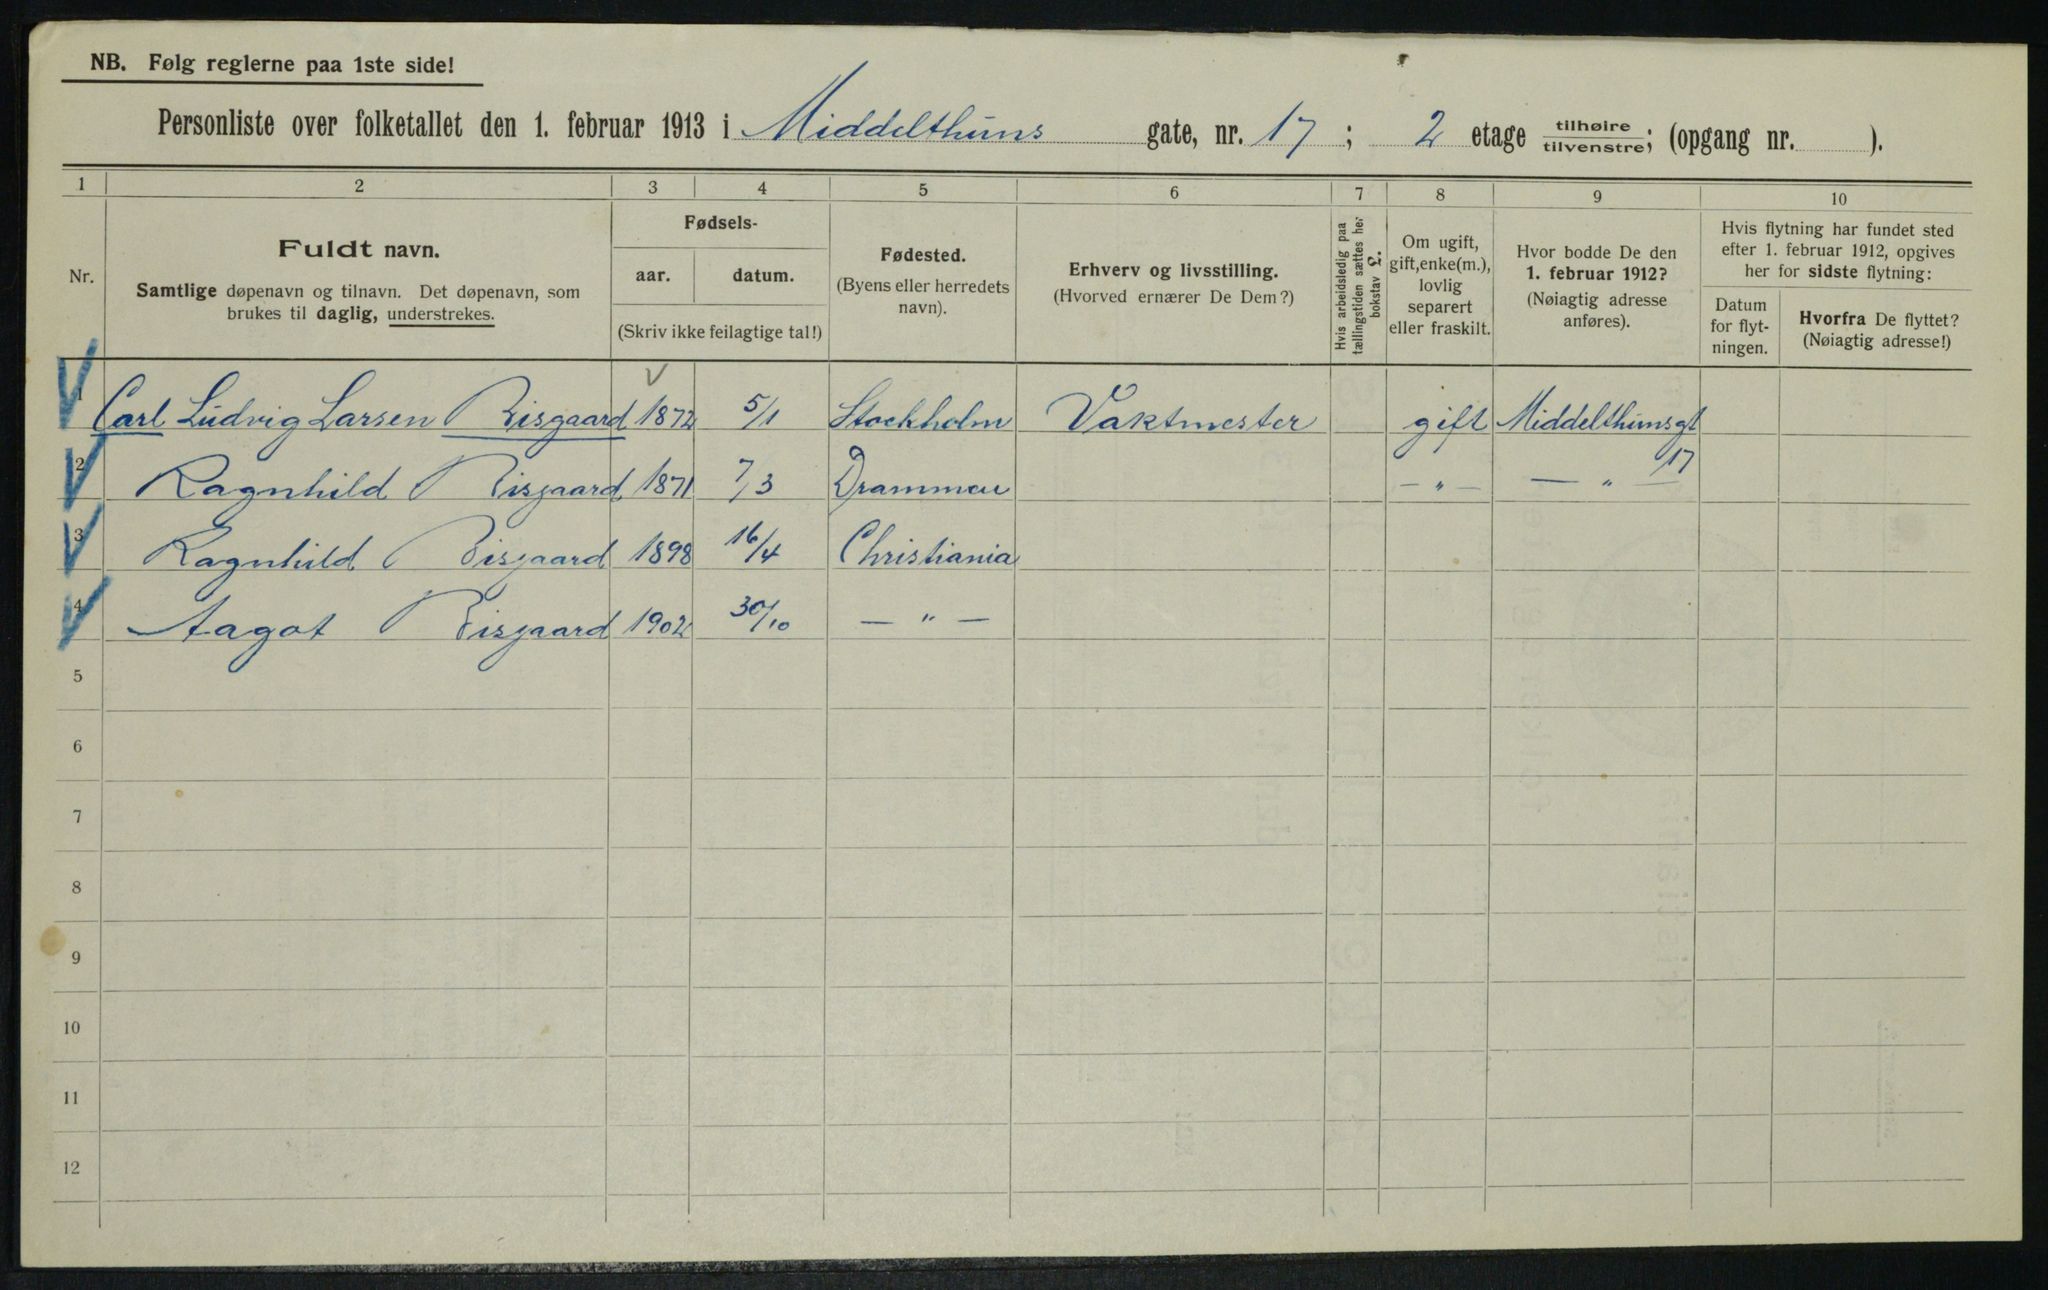 NB. Følg reglerne paa 1ste side!
Personliste over folketallet den 1. februar 1913 i Middelthuns gate, nr. 17; 2 etage tilhøire tilvenstre; (opgang nr. ).
1 2 3 4 5 6 7 8 9 10
Nr.
Fuldt navn.
Samtlige døpenavn og tilnavn. Det døpenavn, som
brukes til daglig, understrekes.
Fødsels-
aar. datum.
(Skriv ikke feilagtige tal!)
Fødested.
(Byens eller herredets
navn).
Erhverv og livsstilling.
(Hvorved ernærer De Dem?)
Hvis arbeidsledig paa
tællingstiden sættes her
bokstav L.
Om ugift,
gift, enke(m.),
lovlig
separert
eller fraskilt.
Hvor bodde De den
1. februar 1912?
(Nøiagtig adresse
anføres).
Hvis flytning har fundet sted
efter 1. februar 1912, opgives
her for sidste flytning:
Datum
for flyt-
ningen.
Hvorfra De flyttet?
(Nøiagtig adresse!)
1 Carl Ludvig Larsen Bisgaard 1872 5/1 Stockholm Vaktmester gift Middelthunsgt 17
2 Ragnhild Bisgaard 1871 7/3 Drammen — „ — — „ —
3 Ragnhild Bisgaard 1898 16/4 Christiania
4 Aagot Bisgaard 1902 30/10 — „ —
5
6
7
8
9
10
11
12